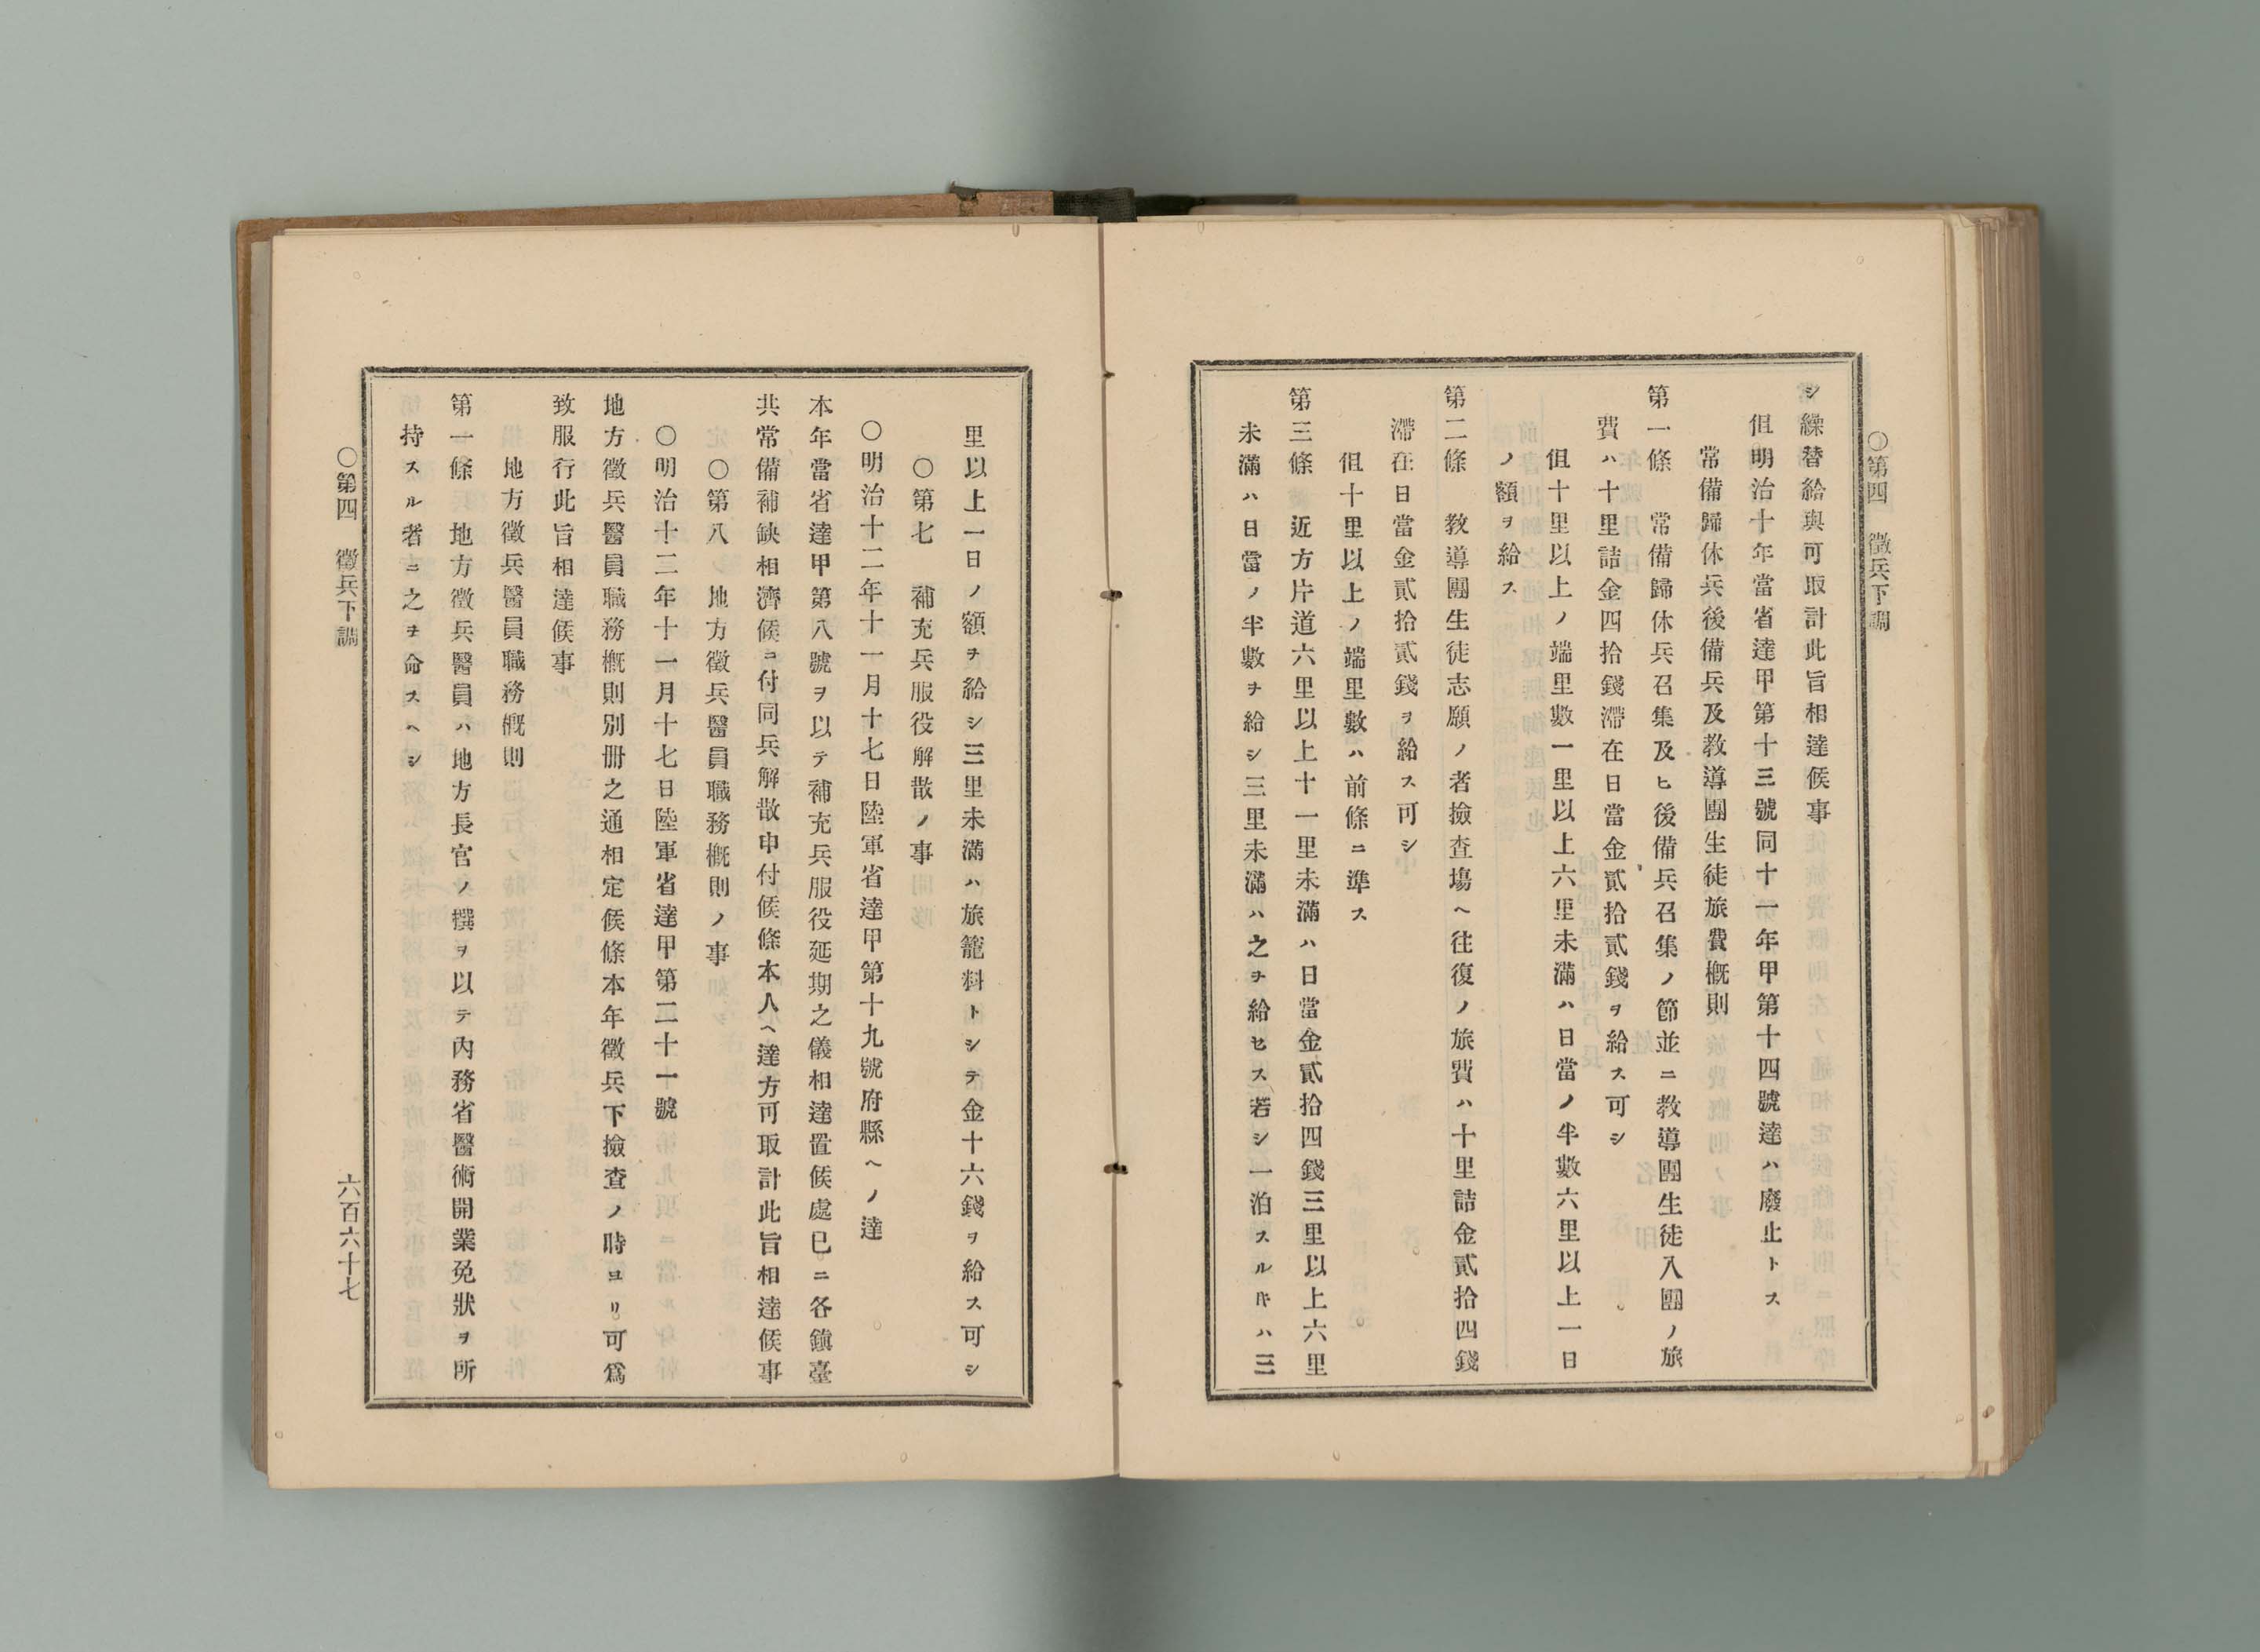 ○第四　徵兵下調
シ繰替給與可取計此旨相達候事
但明治十年當省達甲第十三號同十一年甲第十四號達ハ廢止トス
常備歸休兵後備兵及敎導團生徒旅費槪則
第一條　常備歸休兵召集及ヒ後備兵召集ノ節並ニ敎導團生徒入團ノ旅
費ハ十里詰金四拾錢滯在日當金貳拾貳錢ヲ給ス可シ
但十里以上ノ端里數一里以上六里未滿ハ日當ノ半數六里以上一日
ノ額ヲ給ス
第二條　敎導團生徒志願ノ者撿査塲ヘ往復ノ旅費ハ十里詰金貳拾四錢
滯在日當金貳拾貳錢ヲ給ス可シ
但十里以上ノ端里數ハ前條ニ準ス
第三條　近方片道六里以上十一里未滿ハ日當金貳拾四錢三里以上六里
未滿ハ日當ノ半數ヲ給シ三里未滿ハ之ヲ給セス若シ一泊スル𪜈ハ三
里以上一日ノ額ヲ給シ三里未滿ハ旅籠料トシテ金十六錢ヲ給ス可シ
○第七　補充兵服役解散ノ事
○明治十二年十一月十七日陸軍省達甲第十九號府縣ヘノ達
本年當省達甲第八號ヲ以テ補充兵服役延期之儀相達置候處已ニ各鎭臺
共常備補缺相濟候ニ付同兵解散申付候條本人ヘ達方可取計此旨相達候事
○第八　地方徵兵醫員職務槪則ノ事
○明治十二年十一月十七日陸軍省達甲第二十一號
地方徵兵醫員職務槪則別冊之通相定候條本年徵兵下撿査ノ時ヨリ可爲
致服行此旨相達候事
地方徵兵醫員職務槪則
第一條　地方徵兵醫員ハ地方長官ノ撰ヲ以テ內務省醫術開業免狀ヲ所
持スル者ニ之ヲ命スヘシ
○第四　徵兵下調
六百六十七